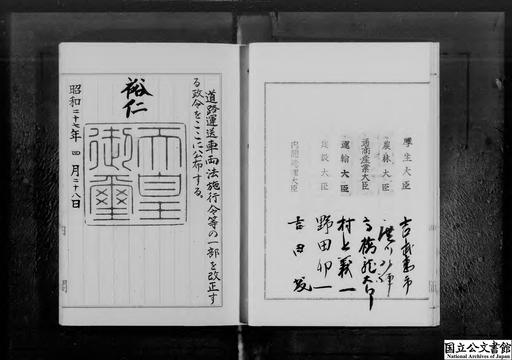 厚生大臣
農林大臣
通商産業大臣
運輸大臣
建設大臣
内閣総理大臣
吉武惠市
高橋龍太郎
村上義一
野田卯一
吉田茂
道路運送車両法施行令等の一部を改正す
る政令をここに公布する。
裕仁
天皇
御璽
昭和二十七年四月二十八日
国立公文書館
National Archives of Japan